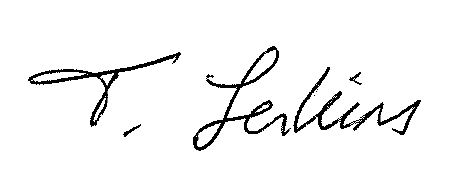 T. Jerkins